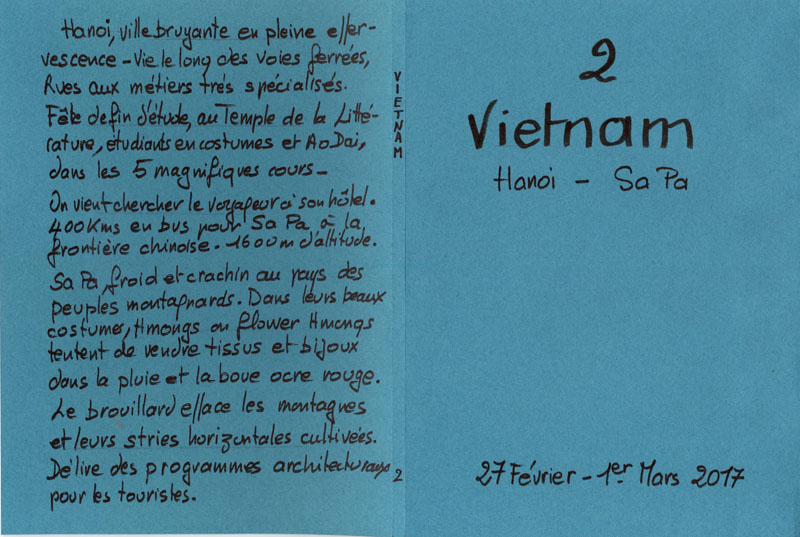 Hanoi, ville bruyante en pleine effer-
vescence - Vie le long des voies ferrées,
Rues aux métiers trés spécialisés.
Fête de fin d'étude, au Temple de la Litté-
rature, étudiants en costumes et Ao Dai,
dans les 5 magnifiques cours -
On vient chercher le voyageur à son hôtel.
400 Kms en bus pour Sa Pa à la
frontière chinoise. 1600 m d'altitude.
Sa Pa, froid et crachin au pays des
peuples montagnards. Dans leurs beaux
costumes, Hmongs ou flower Hmongs
tentent de vendre tissus et bijoux
dans la pluie et la boue ocre rouge.
Le brouillard efface les montagnes
et leurs stries horizontales cultivées.
Délire des programmes architecturaux
pour les touristes.
VIETNAM
2
2
Vietnam
Hanoi - Sa Pa
27 Février - 1er Mars 2017